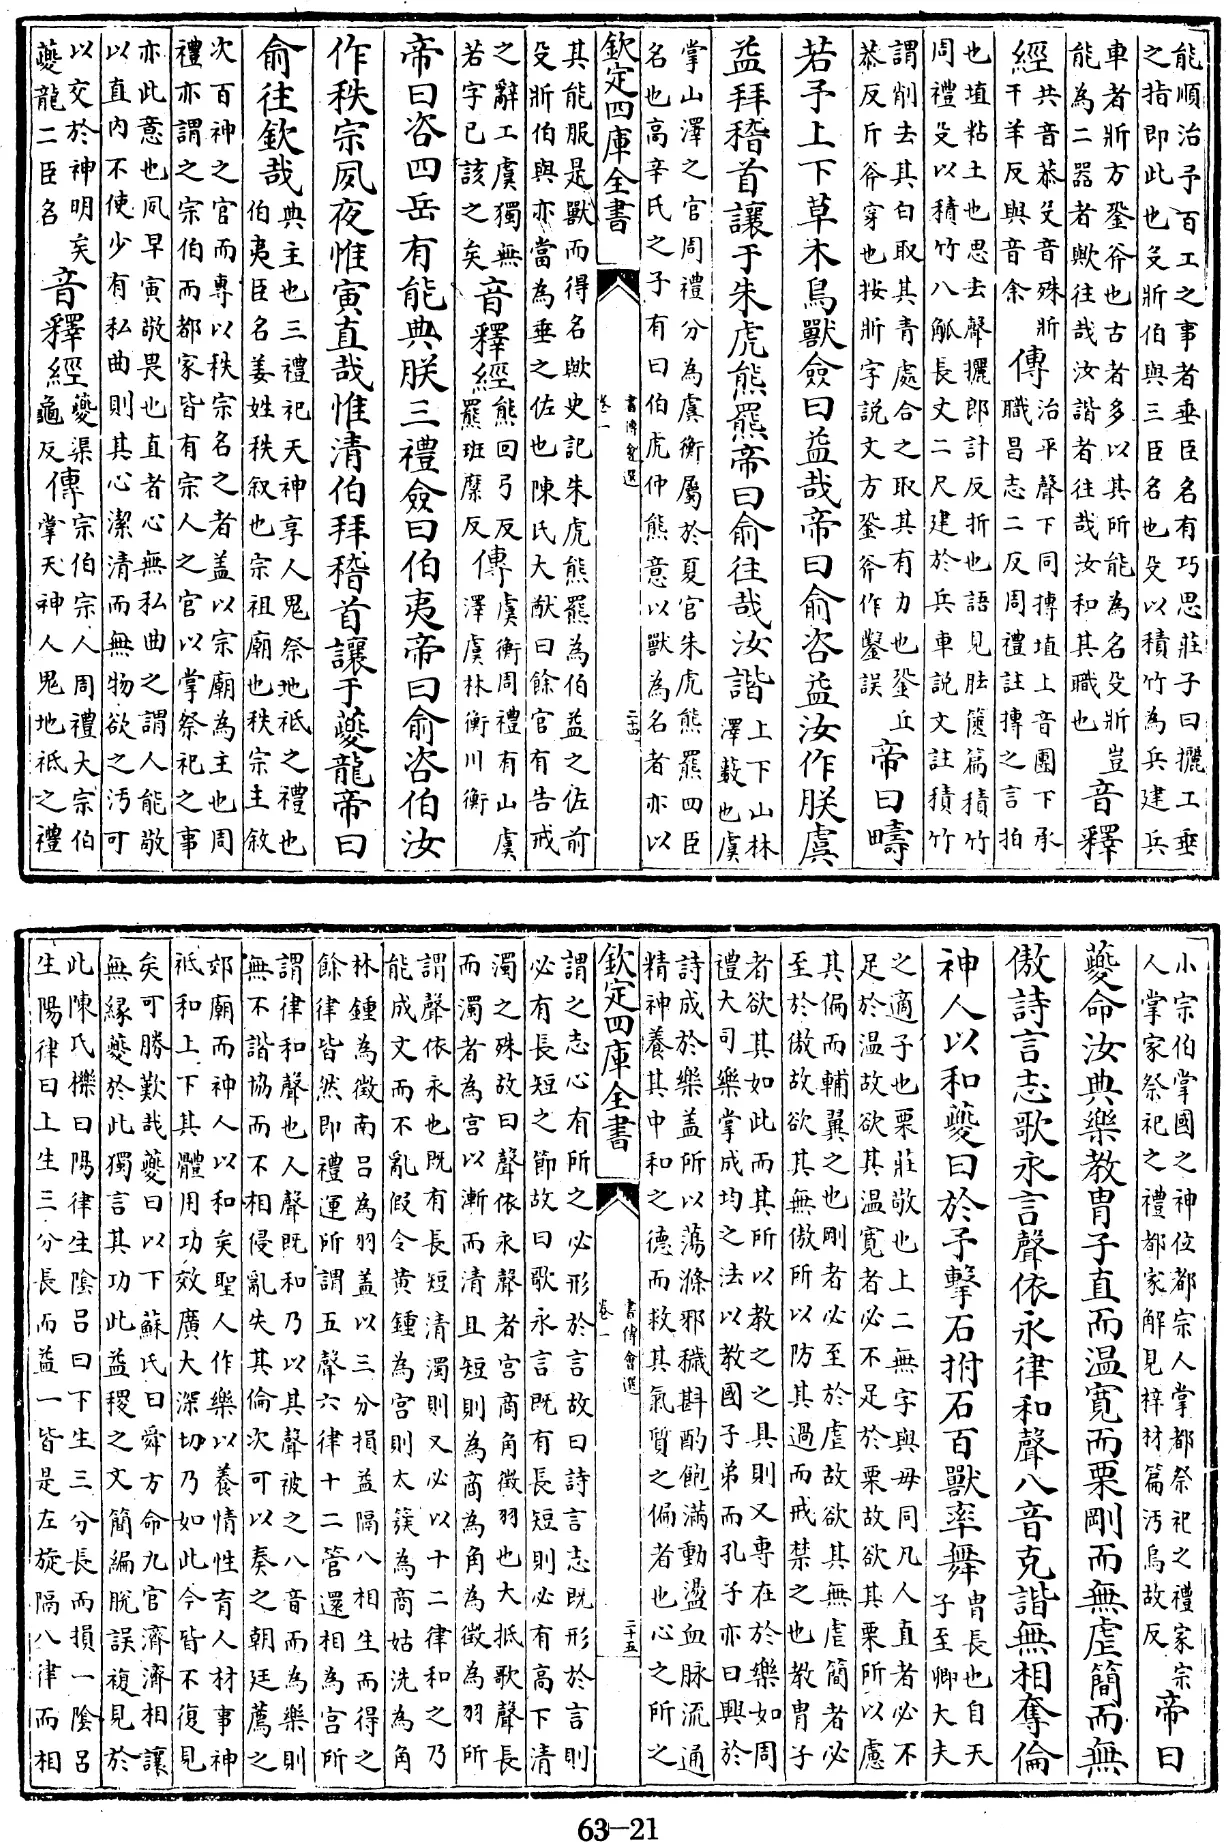 能順治予百工之事者垂臣名有巧思莊子曰攦工垂
之指即此也殳斨伯與三臣名也殳以積竹為兵建兵
車者斨方銎斧也古者多以其所能為名殳斨豈
能為二器者歟往哉汝諧者往哉汝和其職也
音釋
經共音恭殳音殊斨
干羊反與音余
傳治平聲下同搏埴上音團下承
職昌志二反周禮註搏之言拍
也埴粘土也思去聲攦郎計反折也語見胠篋篇積竹
周禮殳以積竹八觚長丈二尺建於兵車說文註積竹
謂削去其白取其青處合之取其有力也銎丘
恭反斤斧穿也按斨字說文方銎斧作鑿誤
帝曰疇
若予上下草木鳥獸僉曰益哉帝曰俞咨益汝作朕虞
益拜稽首讓于朱虎熊羆帝曰俞往哉汝諧
上下山林
澤藪也虞
掌山澤之官周禮分為虞衡屬於夏官朱虎熊羆四臣
名也高辛氏之子有曰伯虎仲熊意以獸為名者亦以
欽定四庫全書
書傳會選
卷一
二十四
其能服是獸而得名歟史記朱虎熊羆為伯益之佐前
殳斨伯與亦當為垂之佐也陳氏大猷曰餘官有告戒
之辭工虞獨無
若字已該之矣
音釋
經熊回弓反
羆班糜反
傳虞衡周禮有山虞
澤虞林衡川衡
帝曰咨四岳有能典朕三禮僉曰伯夷帝曰俞咨伯汝
作秩宗夙夜惟寅直哉惟清伯拜稽首讓于夔龍帝曰
俞往欽哉
典主也三禮祀天神享人鬼祭地祇之禮也
伯夷臣名姜姓秩叙也宗祖廟也秩宗主敘
次百神之官而專以秩宗名之者盖以宗廟為主也周
禮亦謂之宗伯而都家皆有宗人之官以掌祭祀之事
亦此意也夙早寅敬畏也直者心無私曲之謂人能敬
以直內不使少有私曲則其心潔清而無物欲之汚可
以交於神明矣
夔龍二臣名
音釋
經夔渠
龜反
傳宗伯宗人周禮大宗伯
掌天神人鬼地祇之禮
小宗伯掌國之神位都宗人掌都祭祀之禮家宗
人掌家祭祀之禮都家解見梓材篇汚烏故反
帝曰
夔命汝典樂教胄子直而温寛而栗剛而無虐簡而無
傲詩言志歌永言聲依永律和聲八音克諧無相奪倫
神人以和夔曰於予擊石拊石百獸率舞
胄長也自天
子至卿大夫
之適子也栗莊敬也上二無字與毋同凡人直者必不
足於温故欲其温寛者必不足於栗故欲其栗所以慮
其偏而輔翼之也剛者必至於虐故欲其無虐簡者必
至於傲故欲其無傲所以防其過而戒禁之也教胄子
者欲其如此而其所以教之之具則又專在於樂如周
禮大司樂掌成均之法以教國子弟而孔子亦曰興於
詩成於樂盖所以蕩滌邪穢斟酌飽滿動盪血脉流通
精神養其中和之德而救其氣質之偏者也心之所之
欽定四庫全書
書傳會選
卷一
二十五
謂之志心有所之必形於言故曰詩言志既形於言則
必有長短之節故曰歌永言既有長短則必有高下清
濁之殊故曰聲依永聲者宮商角徵羽也大抵歌聲長
而濁者為宮以漸而清且短則為商為角為徵為羽所
謂聲依永也既有長短清濁則又必以十二律和之乃
能成文而不亂假令黄鍾為宮則太簇為商姑洗為角
林鍾為徵南呂為羽盖以三分損益隔八相生而得之
餘律皆然即禮運所謂五聲六律十二管還相為宮所
謂律和聲也人聲既和乃以其聲被之八音而為樂則
無不諧協而不相侵亂失其倫次可以奏之朝廷薦之
郊廟而神人以和矣聖人作樂以養情性育人材事神
祇和上下其體用功效廣大深切乃如此今皆不復見
矣可勝歎哉夔曰以下蘇氏曰舜方命九官濟濟相讓
無緣夔於此獨言其功此益稷之文簡編脫誤複見於
此陳氏櫟曰陽律生陰呂曰下生三分長而損一陰呂
生陽律曰上生三分長而益一皆是左旋隔八律而相
63-21